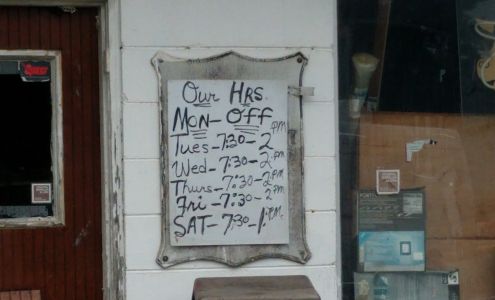 Our Hrs.
Mon- Off
Tues-7:30-2 PM
Wed-7:30-2 PM
Thurs-7:30-2 PM
Fri-7:30-2 PM
SAT-7:30-1 P.M.